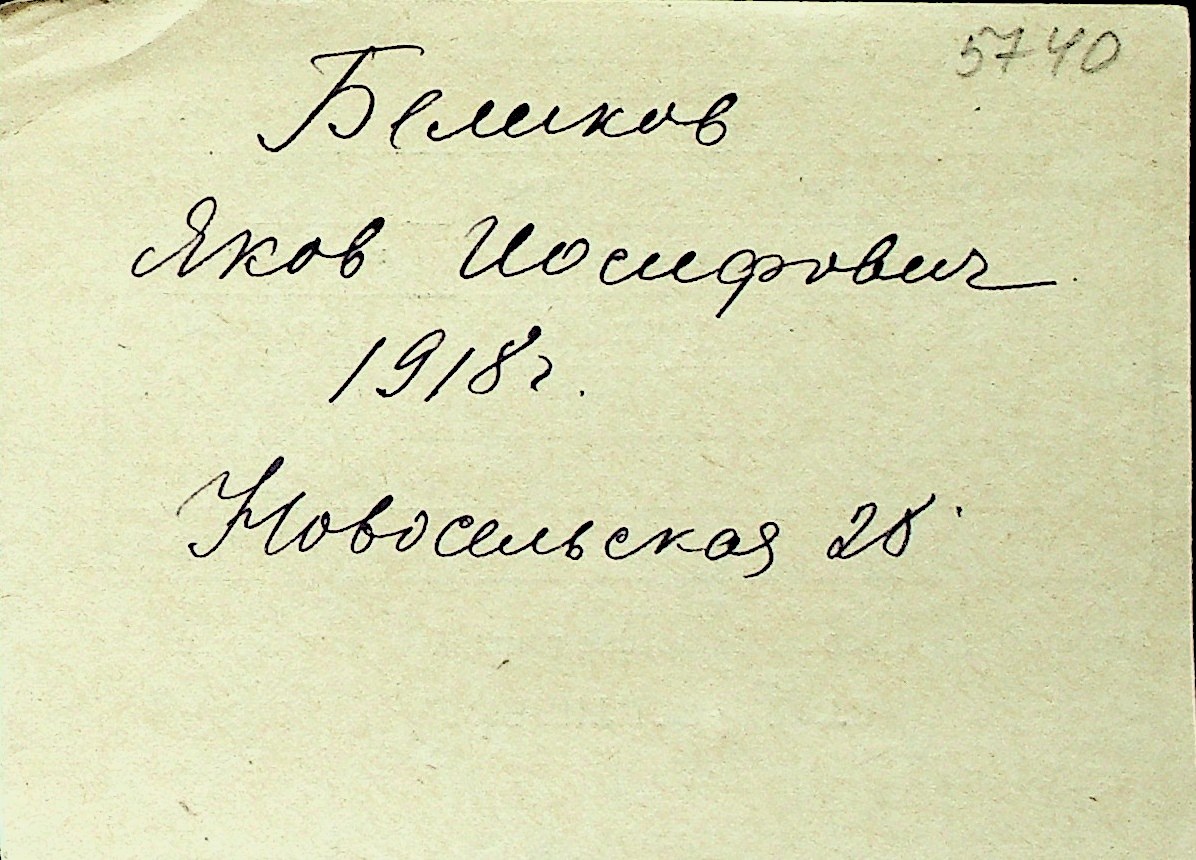 5740
Беликов
Яков Иосифович
1918г.
Новосельская 28